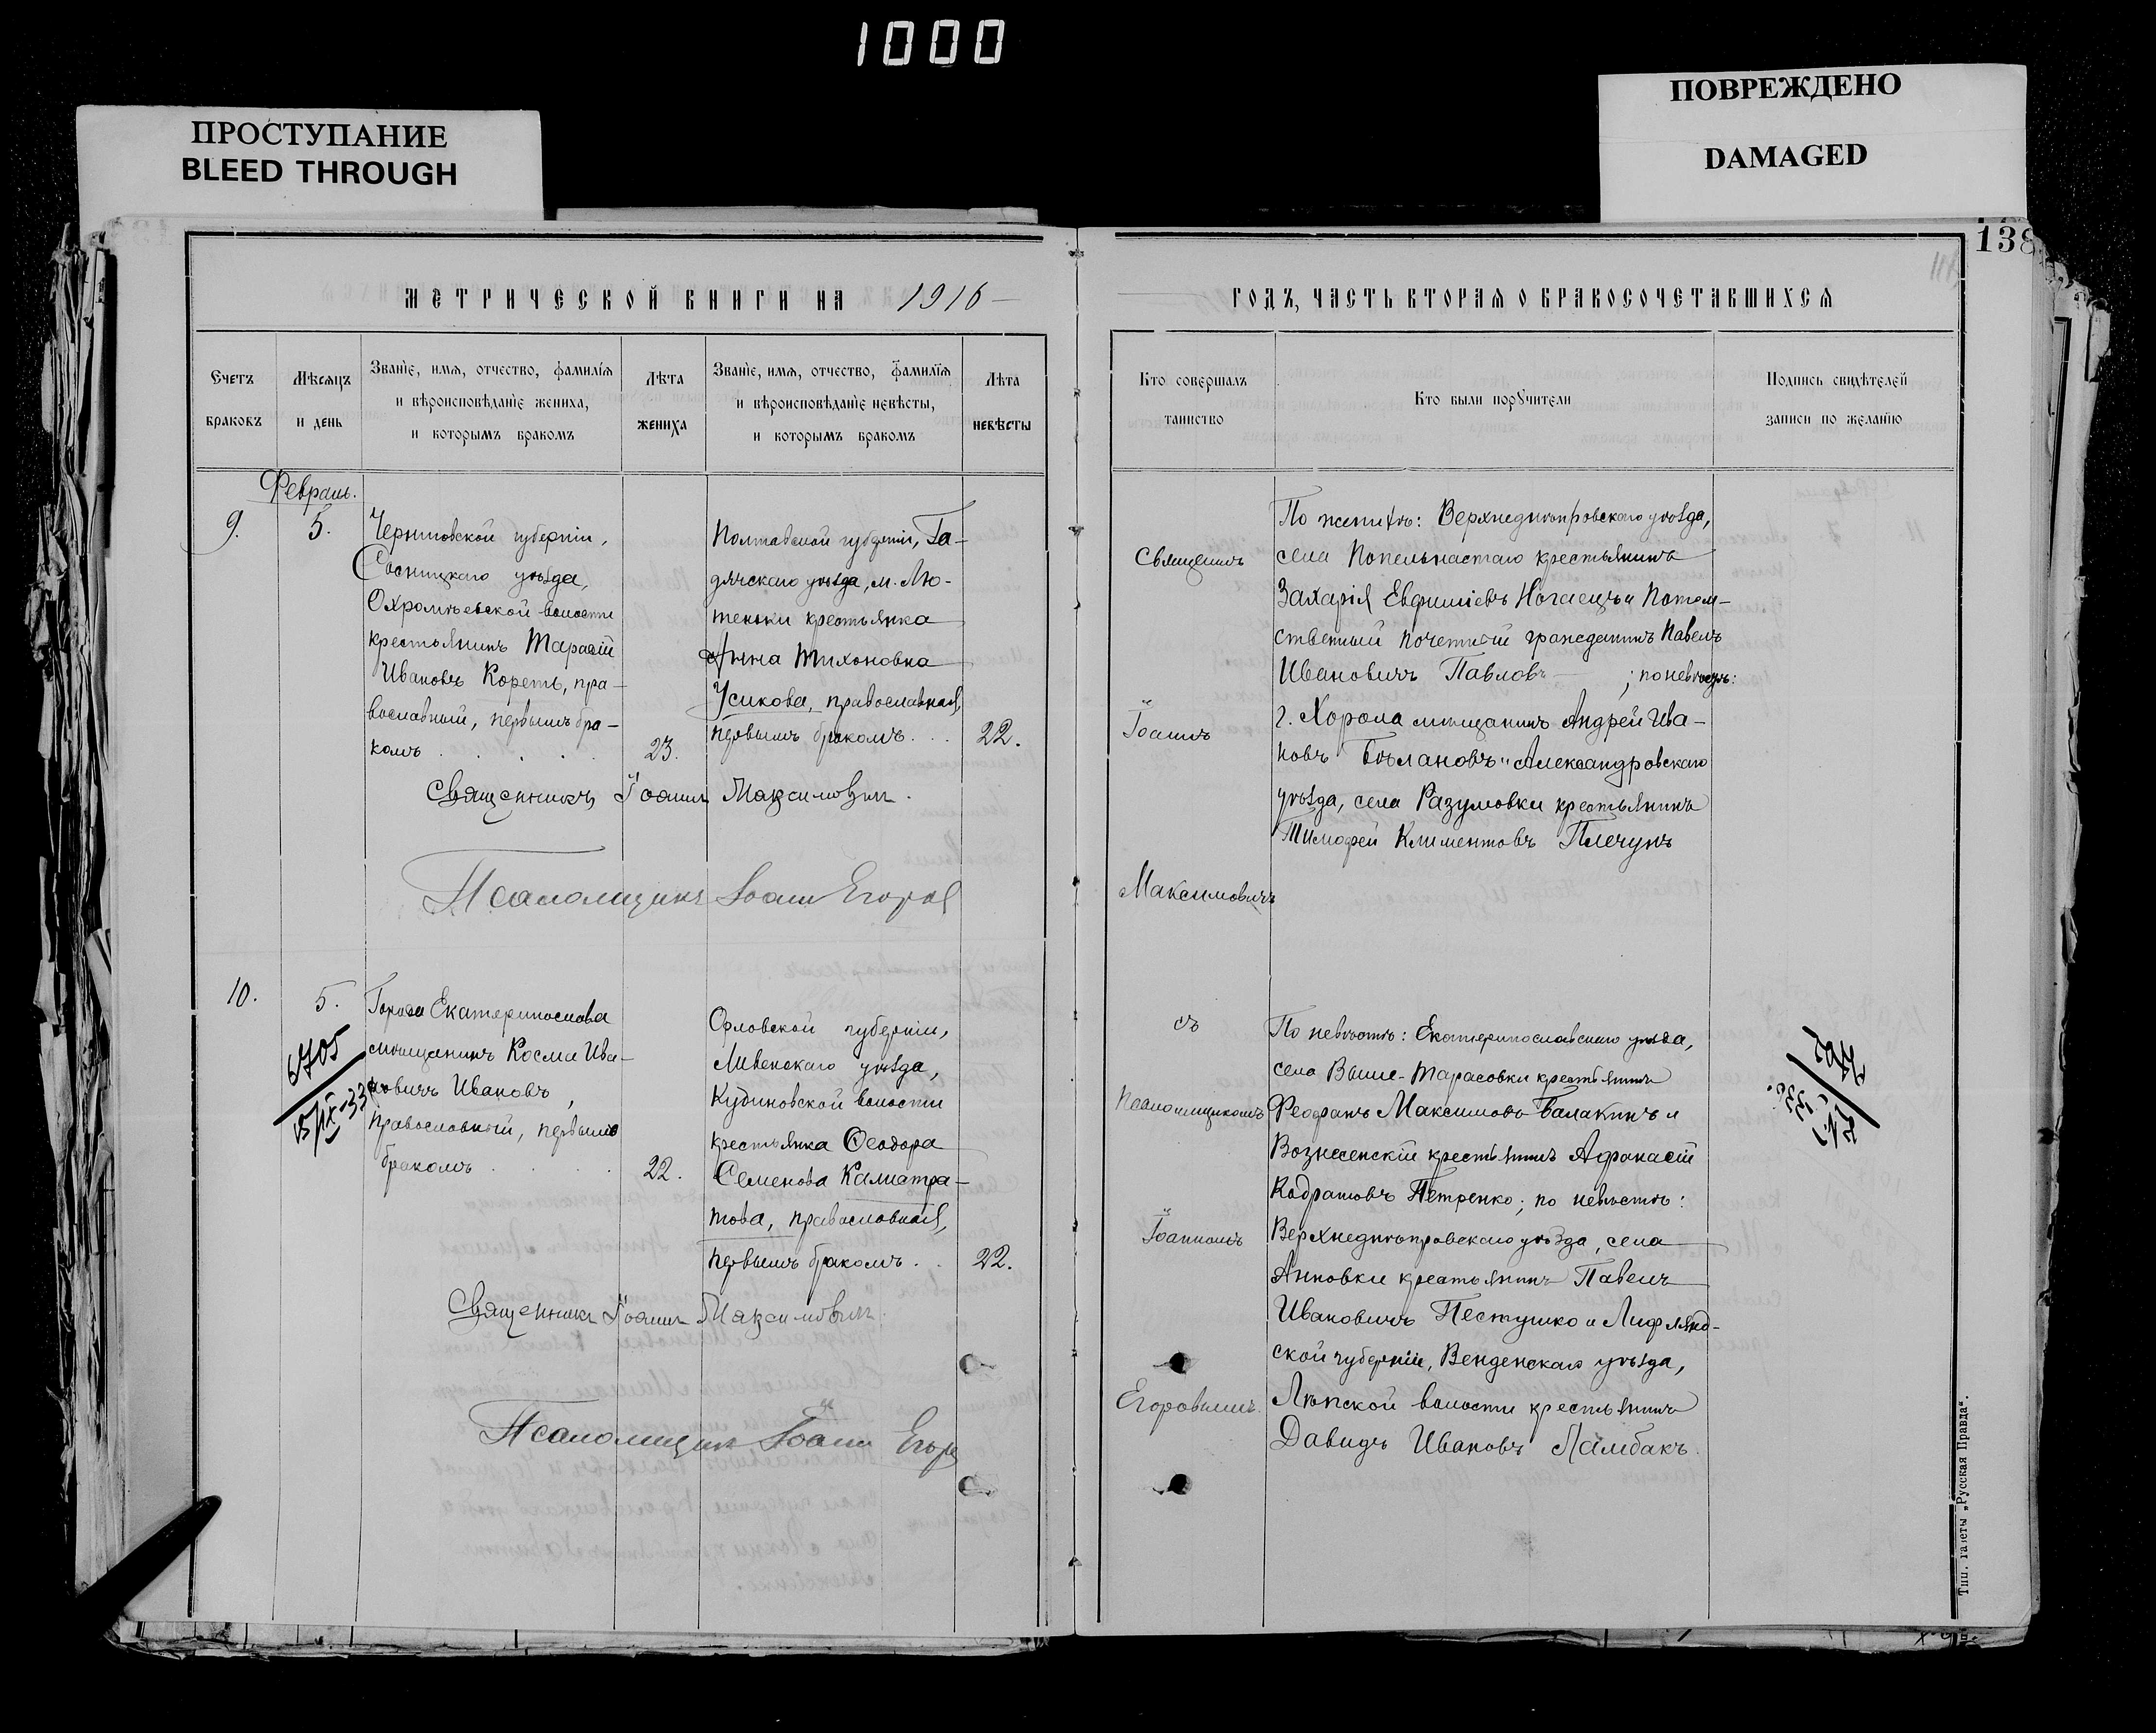 1000
ПРОСТУПАНИЕ
BLEED THROUGH
ПОВРЕЖДЕНО
DAMAGED
138
МЕТРИЧЕСКОЙ КНИГИ НА 1916
ГОДЪ, ЧАСТЬ ВТОРАЯ О БРАКОСОЧЕТАВШИХСЯ
Счетъ браковъ
Мѣсяцъ и день
Званіе, имя, отчество, фамилія
и вѣроисповѣданіе жениха,
и которымъ бракомъ
Лѣта жениха
Званіе, имя, отчество, фамилія
и вѣроисповѣданіе невѣсты,
и которымъ бракомъ
Лѣта невѣсты
Кто совершалъ таинство
Кто были порꙋчители
Подпись свидѣтелей
записи по желанію
Февраль.
9.
5.
Черниговской губерніи,
Сосницкаго уѣзда,
Охромѣевской волости
крестьянинъ Тарасій
Ивановъ Кореть, пра-
вославный, первымъ бра-
комъ
23.
Полтавской губерніи, Га-
дячскаго уѣзда, м. Лю-
теньки крестьянка
Анна Тихоновна
Усикова, православная,
первымъ бракомъ
22.
Священникъ Іоаннъ Максимовичъ.
Псаломщикъ Іоаннъ Егоровъ
Священникъ
Іоаннъ
Максимовичъ
По женихѣ: Верхнеднѣпровскаго уѣзда,
села Попельнастаго крестьянинъ
Захарія Евфиміевъ Ногаецъ и Потом-
ственный почетный гражданинъ Павелъ
Ивановичъ Павловъ; по невѣстѣ:
г. Хорола мѣщанинъ Андрей Ива-
новъ Бѣлановъ и Александровскаго
уѣзда, села Разумовки крестьянинъ
Тимофей Климентовъ Плечунъ
10.
5.
6705
15/IX-33
Города Екатеринослава
мѣщанинъ Косма Ива-
новичъ Ивановъ,
православный, первымъ
бракомъ
22.
Орловской губерніи,
Ливенскаго уѣзда,
Кудиновской волости
крестьянка Ѳеодора
Семенова Калистра-
това, православная,
первымъ бракомъ
22.
Священникъ Іоаннъ Максимовичъ
Псаломщикъ Іоаннъ Егор
съ
Псаломщикомъ
Іоанномъ
Егоровымъ.
По невѣстѣ: Екатеринославскаго уѣзда,
села Выше-Тарасовки крестьянинъ
Феофанъ Максимовъ Балакинъ и
Вознесенскій крестьянинъ Афанасій
Кодратовъ Петренко; по невѣстѣ:
Верхнеднѣпровскаго уѣзда, села
Анновки крестьянинъ Павелъ
Ивановичъ Пестушко и Лифлянд-
ской губерніи, Венденскаго уѣзда,
Лѣпской волости крестьянинъ
Давидъ Ивановъ Ламбакъ.
Тип. газеты „Русская Правда“.